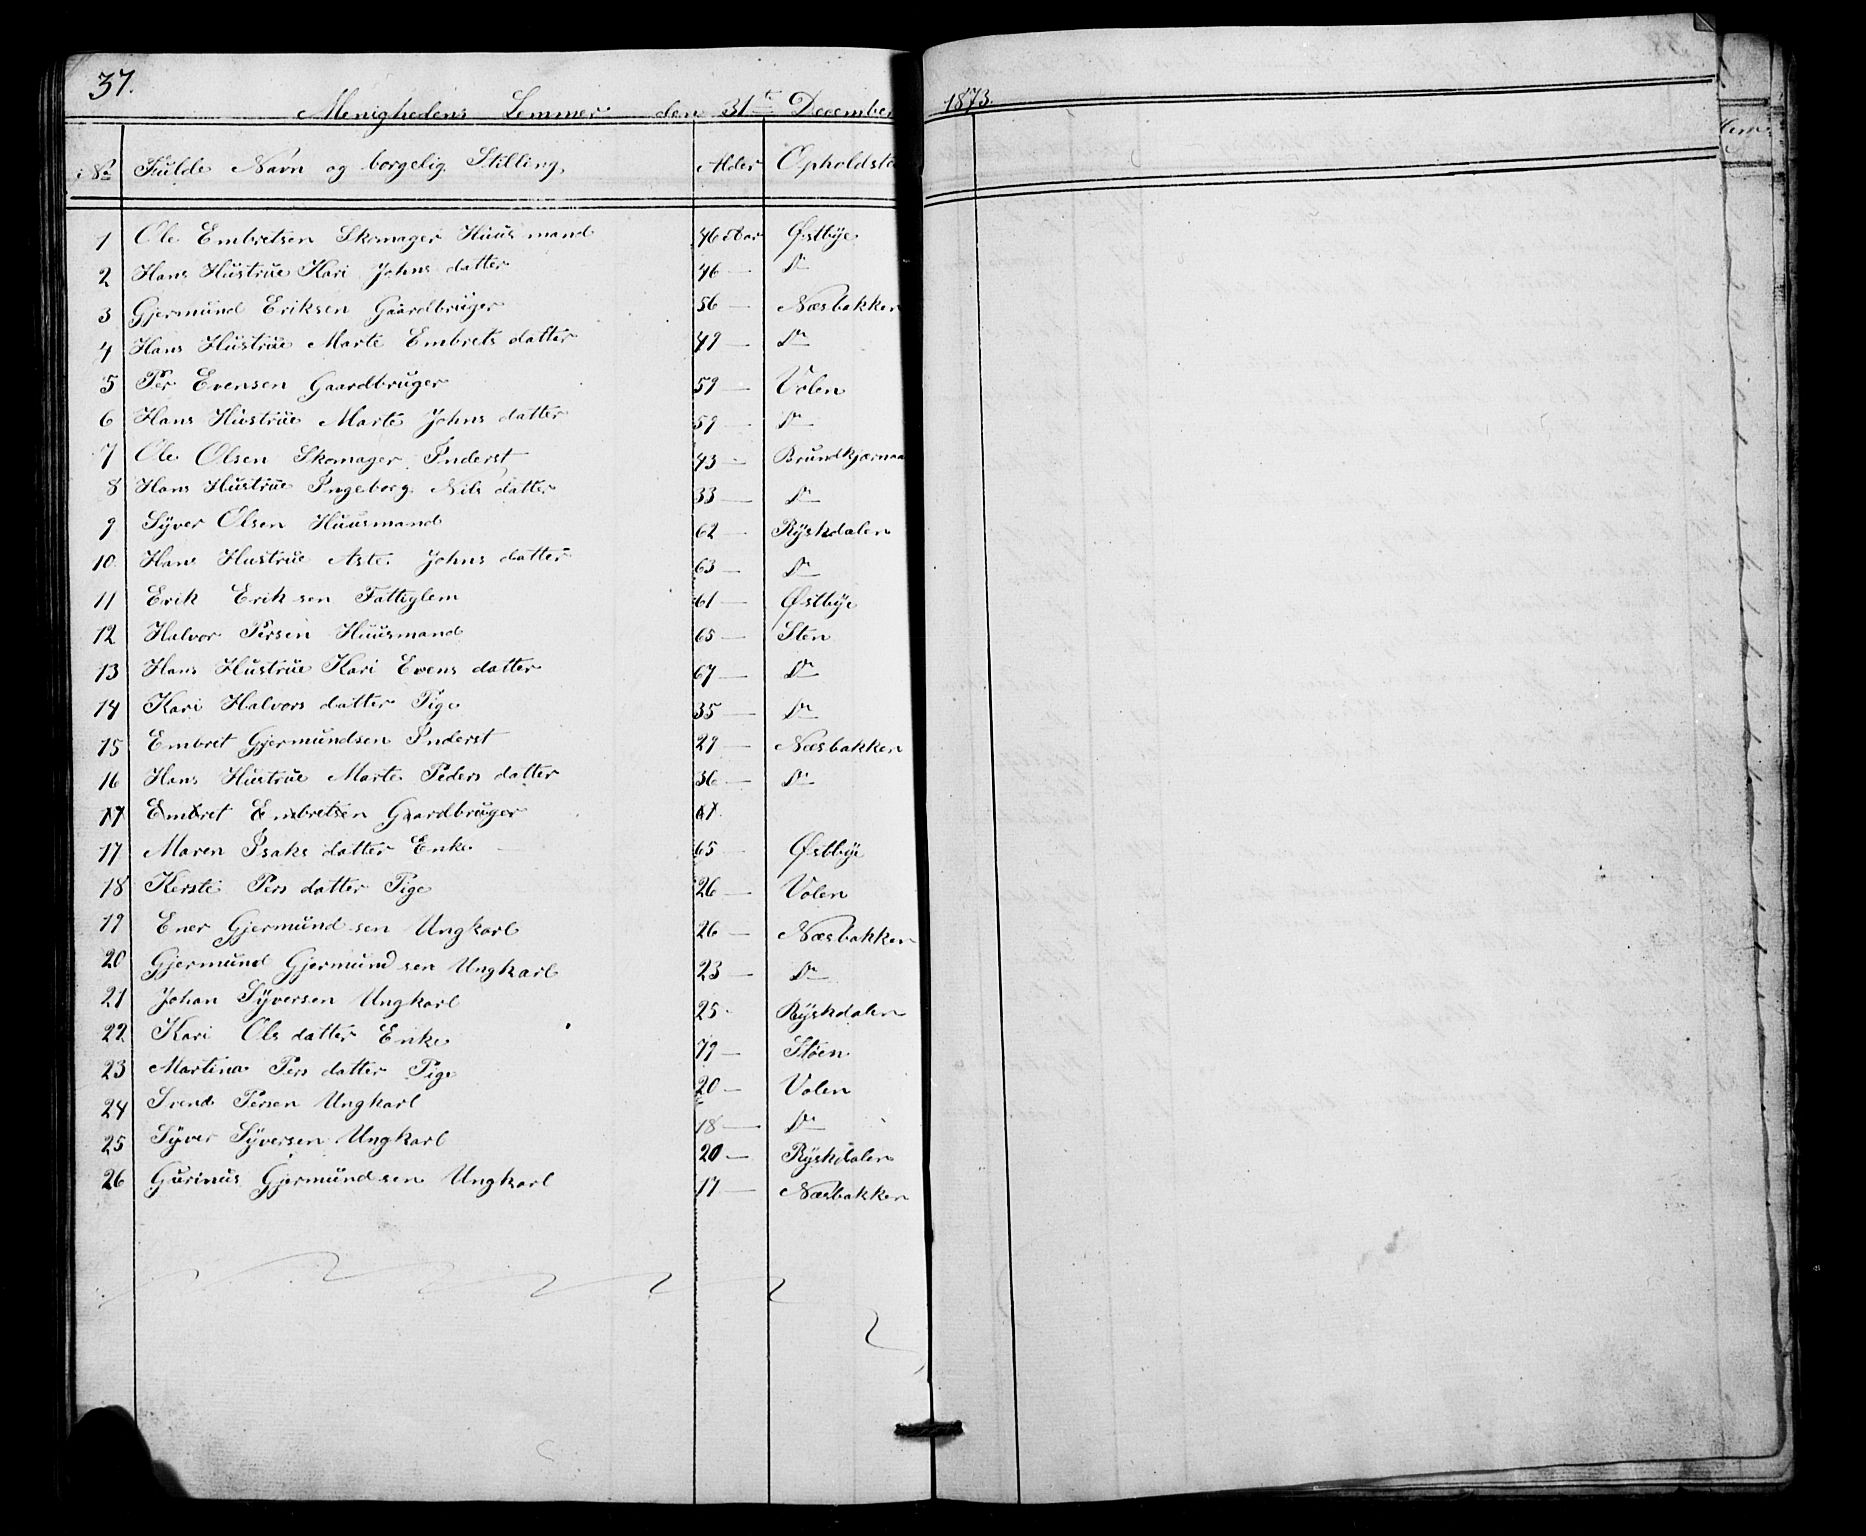 37.
Menighedens Lemmer den 31te December 1873.
No Fulde Navn og borgelig Stilling. Alder Opholdste
1 Ole Embretsen Skomager Huusmand 46 Aar Østbye
2 Hans Hustrue Kari Johns datter 46 — Do
3 Gjermund Eriksen Gaardbruger 56 — Næsbakken
4 Hans Hustrue Marte Embrets datter 49 — Do
5 Per Evensen Gaardbruger 59 — Volen
6 Hans Hustrue Marte Johns datter 59 — Do
7 Ole Olsen Skomager Inderst 43 —
8 Hans Hustrue Ingeborg Nils datter 33 — Do
9 Syver Olsen Huusmand 62 — Ryskdalen
10 Hans Hustrue Aste Johns datter 63 — Do
11 Erik Eriksen Fattiglem 61 — Østbye
12 Halvor Persen Huusmand 65 — Sten
13 Hans Hustrue Kari Evens datter 67 — Do
14 Kari Halvors datter Pige 35 — Do
15 Embret Gjermundsen Inderst 29 — Næsbakken
16 Hans Hustrue Marte Peders datter 36 — Do
17 Embret Embretsen Gaardbruger 61.
17 Maren Isaks datter Enke 65 — Østbye
18 Kersti Pers datter Pige 26 — Volen
19 Ener Gjermundsen Ungkarl 26 — Næsbakken
20 Gjermund Gjermundsen Ungkarl 23 — Do
21 Johan Syversen Ungkarl 25 - Ryskdalen
22 Kari Ols datter Enke 79 — Støen
23 Martina Pers datter Pige 20 — Volen
24 Svend Persen Ungkarl 18 — Do
25 Syver Syversen Ungkarl 20 — Ryskdalen
26 Gurinus Gjermundsen Ungkarl 17 — Næsbakken